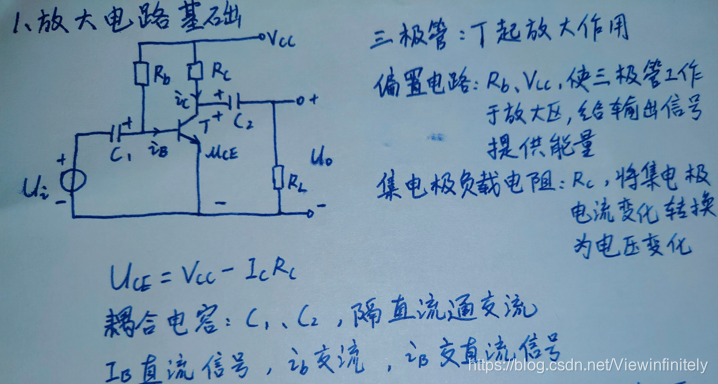 1、放大电路基础
VCC
Rb
Rc
iC
+
+
C2
+
+
T
C1
iB
UCE
Uo
Ui
+
-
RL
-
-
三极管:T起放大作用
偏置电路:Rb、Vcc,使三极管工作
于放大区,给输出信号
提供能量
集电极负载电阻:Rc,将集电极
电流变化转换
为电压变化
UCE = VCC - ICRC
耦合电容:C1、C2,隔直流通交流
IB直流信号,ib交流,iB交直流信号
https://blog.csdn.net/Viewinfinitely